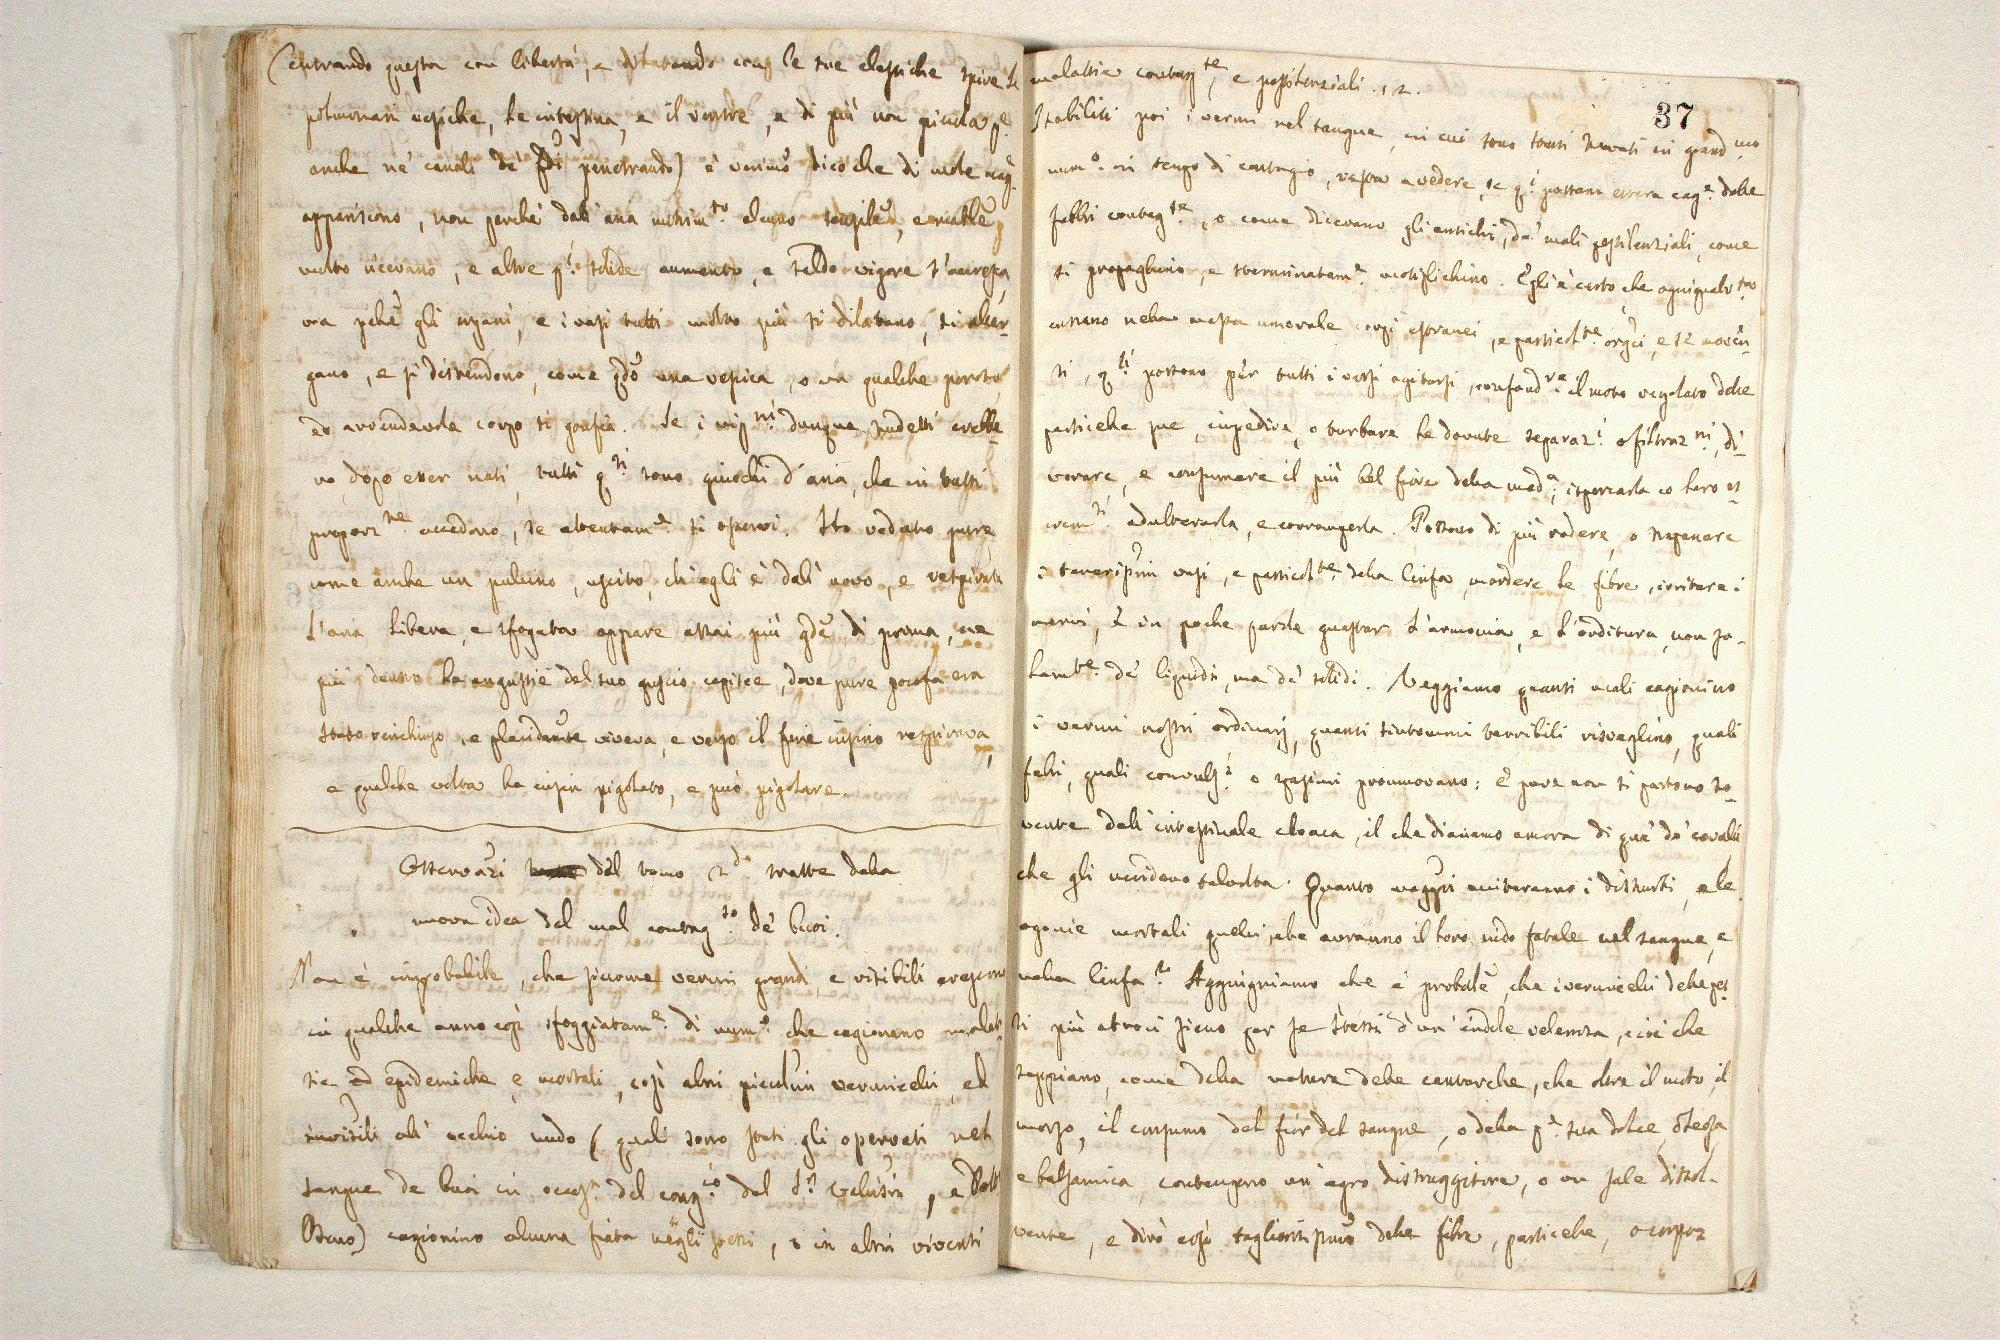 (entrando questa con libertà, e dilatando con le sue elastiche spire le
polmonari vesciche, le intestina, e il ventre, e di più non piccola pe
anche ne' canali de' penetrando) è verissimo dico che di mole
appariscono, non perchè dall'aria nutrimto alcuno sensibile, e
molto ricevano, e altre pti solide aumento, e saldo vigore s'accresca,
ma pchè gli organi, e i vasi tutti molto più si dilatano, si aller-
gano, e si distendono, come qdo una vescica, o va qualche
ed arrendevole corpo si gonfia. Se i dunque sudetti cresce
no, dopo esser nati, tutti qsti sono giuochi d'aria, che in tutti
proporzte accadono, se attentame si osservi. Ho veduto pure
come anche un pulcino, uscito, ch'egli è dall'uovo, e respirata
l'aria libera, e sfogata appare assai più gde di prima, ne
più dentro la angustie del suo guscio capisce, dove pure pocofa era
stato rinchiuso, e viveva, e verso il fine respirava,
e qualche volta ha pigolato, e può pigolare.
Osservazi del tomo 2do tratte dalla
nuova idea del mal contagso de' buoi.
Non è improbabile, che siccome vermi grandi, e visibili crescono
in qualche anno così sfoggiatame di numo che cagionano malat
tie ed epidemiche, e mortali, così altri piccolissimi vermicelli, ed
invisibili all'occhio nudo (quali sono stati gli osservati nel
sangue de buoi in del contagio dal Sr , e Dottr
) cagionino alcuna fiata negli stessi, o in altri viventi
malattie contagte, e pestilenziali.
37
Stabiliti poi i vermi nel sangue, in cui sono stati trovati in grandmo
numo in tempo di contagio, resta a vedere, se qti possano essere cage delle
febbri contagse, o come dicevano gli antichi, de' mali pestilenziali, come
si propaghino, e sterminatame moltiplichino. Egli è certo che ogniqualvta
entrano nella massa umorale corpi estranei, e particolte orgci, e se movēn-
ti, qsti possono per tutti i vasi agitarsi, confondre il moto regolato delle
particelle sue, impedire, o turbare le dovute separazi o filtrazni, di-
vorare, e consumare il più bel fiore della meda, isporcarla co loro es-
cremti, adulterarla, e corromperla. Possono di più rodere, o trapanare
i tenerissimi vasi, e particolte della linfa, mordere le fibre, irritare i
nervi, E in poche parole guastar l'armonia, e l'orditura, non so-
lamte de' liquidi, ma de' solidi. Veggiamo quanti mali cagionino
i vermi nostri ordinarj, quanti sintommi terribili risveglino, quali
febri, quali convulsi o spasimi promuovano: E pure non si partono so-
vente dall'intestinale cloaca, il che diciamo ancora di que' de' cavalli
che gli uccidono talvolta. Quanto maggiori ecciteranno i disturbi, e le
agonie mortali quelli, che avranno il loro nido fatale nel sangue, e
nella linfa? Aggiugniamo che è probabile, che i vermicelli delle pes
ti più atroci sieno per se stessi d'un'indole velenosa, cioè che
sappiano, come della natura delle cantarelle, che oltre il moto, il
morso, il consumo del fior del sangue, o della pte sua dolce, oleosa
e balsamica, contengono un agro distruggitore, o un sale dissol-
vente, e dirò così tagliantissimo delle fibre, particelle, o